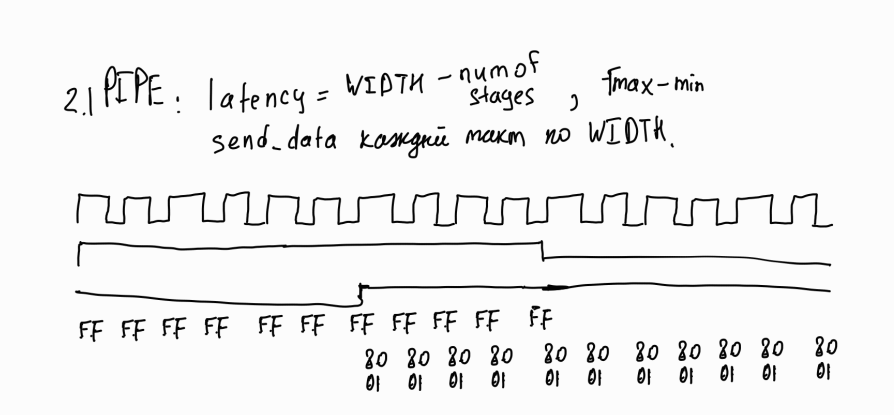 2.1 PIPE: latency = WIDTH - num of stages, Fmax-min
send_data каждый такт по WIDTH.
FF FF FF FF FF FF FF FF FF FF FF
80 80 80 80 80 80 80 80 80 80 80
01 01 01 01 01 01 01 01 01 01 01